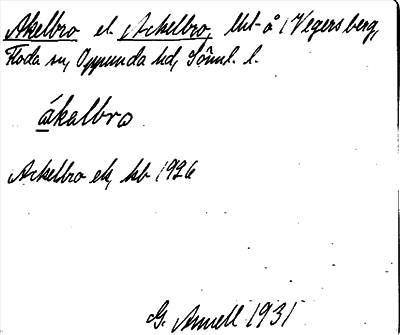 Åkelbro el. Ackelbro, lht å Vegersberg,
Floda sn, Oppunda hd, Söml. l.
ákalbro
Ackelbro ek, kb 1926
G. Annell 1931